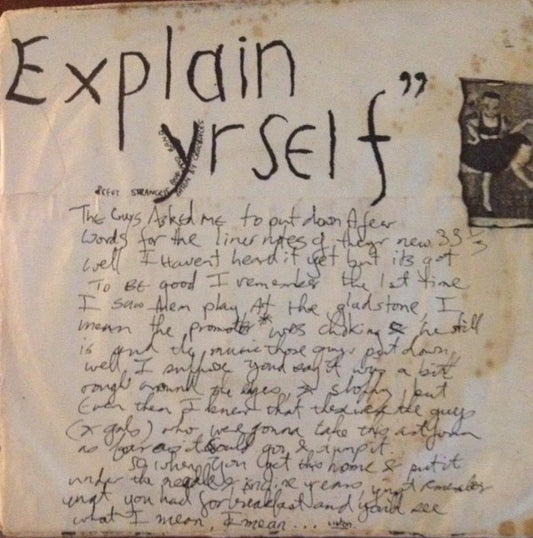 Explain
yrself"
STRANGER
The Guys Asked me to put down A few
words for the liner notes of their new 33 1/3
well I Havent heard it yet but its got
To BE good I remember the 1st time
I saw them play At the gladstone, I
mean the promoter * was choking & he still
is and the music those guys put down,
well, I suppose youd say it was a bit
rough around the eyes, & sloppy, but
Even then I knew that these were the guys
(& gals) who were gonna take this artform
as far as it could go & jump it.
So when you get this home & put it
under the needle in years, you remember
what you had for breakfast and you'd see
what I mean, I mean...